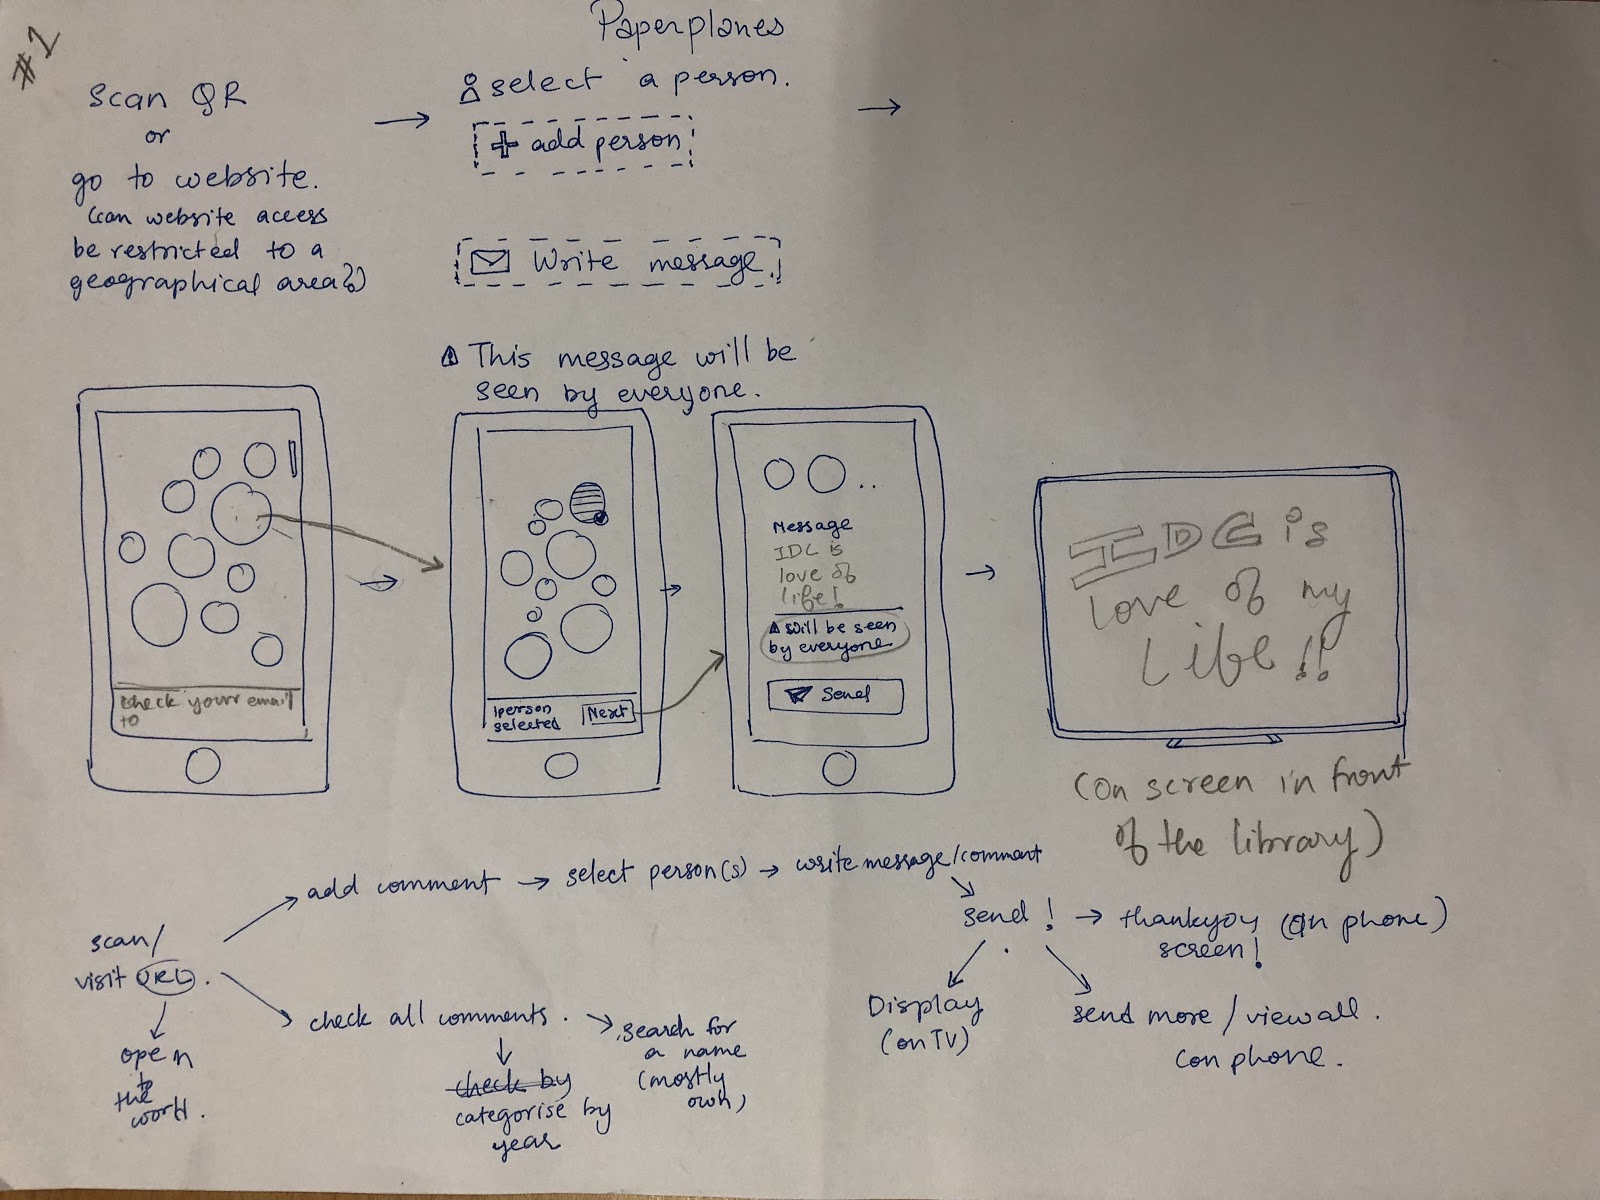 #1
Paperplanes
Scan QR
or
go to website.
(can website access
be restricted to a
geographical area?)
select a person.
+ add person
Write message.
This message will be
seen by everyone.
check your email
to
1person
selected
Next
Message
IDC is
love of
life!
will be seen
by everyone
Send
IDC is
love of my
Life!!
(On screen in front
of the library)
scan/
visit URL.
open
to
the
world.
add comment → select person(s) → write message/comment
send! → thankyou (on phone)
screen!
Display
(on TV)
send more / view all.
(on phone.
check all comments.
check by
categorise by
year
search for
a name
(mostly
own)